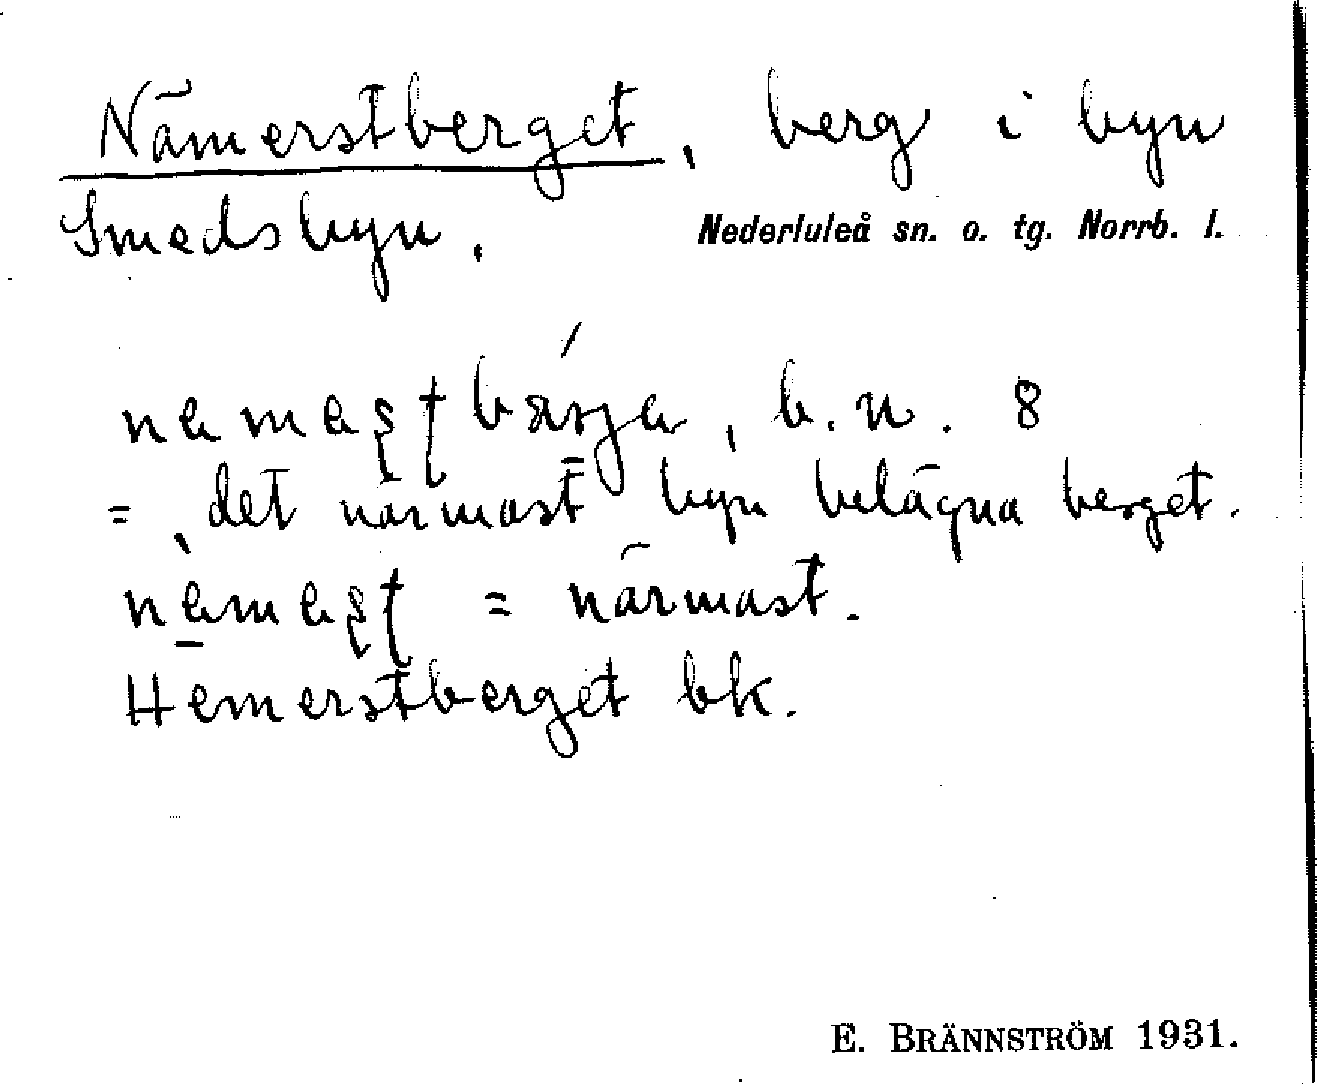 Nämerstberget, berg i byn
Smedsbyn.
Nederluleå sn. o. tg. Norrb. l.
b.n. 8
= det närmast byn belägna berget.
= närmast.
Hemerstberget bk.
E. BRÄNNSTRÖM 1931.